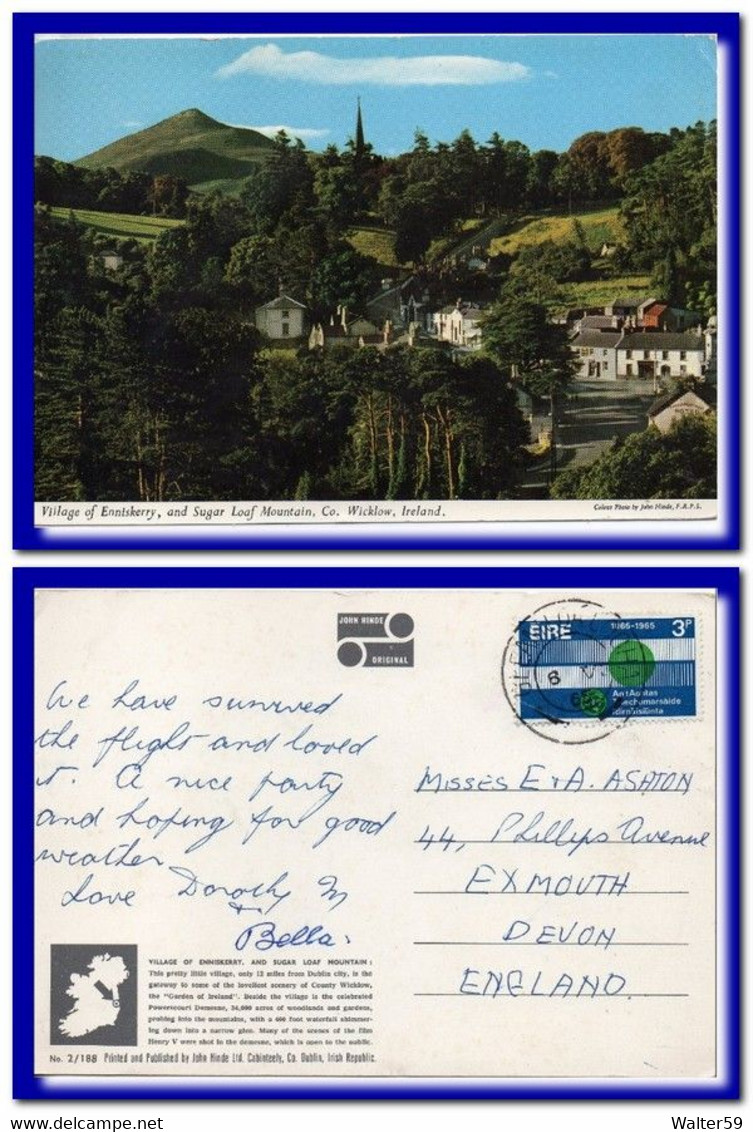 Village of Enniskerry, and Sugar Loaf Mountain, Co. Wicklow, Ireland.
Colour Photo by John Hinde, F.R.P.S.
JOHN HINDE
ORIGINAL
ÉIRE 1865-1965 3P
An tAontas
Teilichumarsáide
Idirnáisiúnta
We have survived
the flight and loved
it. A nice party
and hoping for good
weather
Love Dorothy M
+
Bella.
MISSES E + A. ASHTON
44, Phillips Avenue
EXMOUTH
DEVON
ENGLAND.
VILLAGE OF ENNISKERRY, AND SUGAR LOAF MOUNTAIN:
This pretty little village, only 12 miles from Dublin city, is the
gateway to some of the loveliest scenery of County Wicklow,
the "Garden of Ireland". Beside the village is the celebrated
Powerscourt Demesne, 34,000 acres of woodlands and gardens,
probing into the mountains, with a 400 foot waterfall shimmer-
ing down into a narrow glen. Many of the scenes of the film
Henry V were shot in the demesne, which is open to the public.
No. 2/188 Printed and Published by John Hinde Ltd. Cabinteely, Co. Dublin, Irish Republic.
Walter59